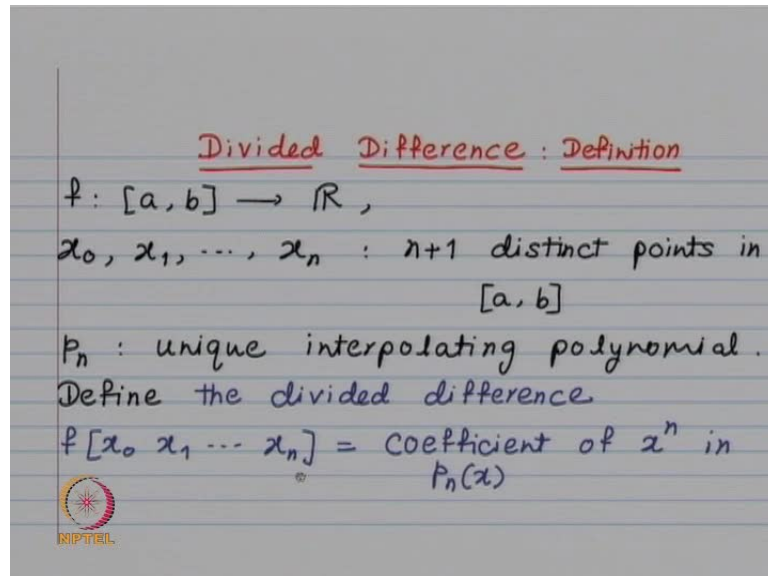 Divided Difference : Definition
f : [a, b] → ℝ ,
x₀, x₁, ⋯, xₙ : n+1 distinct points in
[a, b]
pₙ : unique interpolating polynomial.
Define the divided difference
f[x₀ x₁ ⋯ xₙ] = coefficient of xⁿ in
pₙ(x)
NPTEL